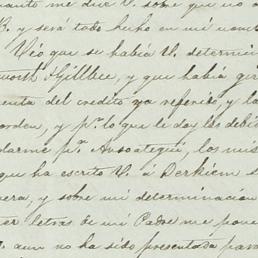 me due V. sobre que no
B. y será todo hecho en mi
Veo que se había V. determin
y que havia gir
enta del credito ya referido, y la
orden, y pr. lo que le doy las debid
darme pr. Ansoategui, los mis
que ha escrito V. á Derkiem s
era, y sobre mi determinacion
er letras de mi Padre me pone
aun no ha sido presentada para